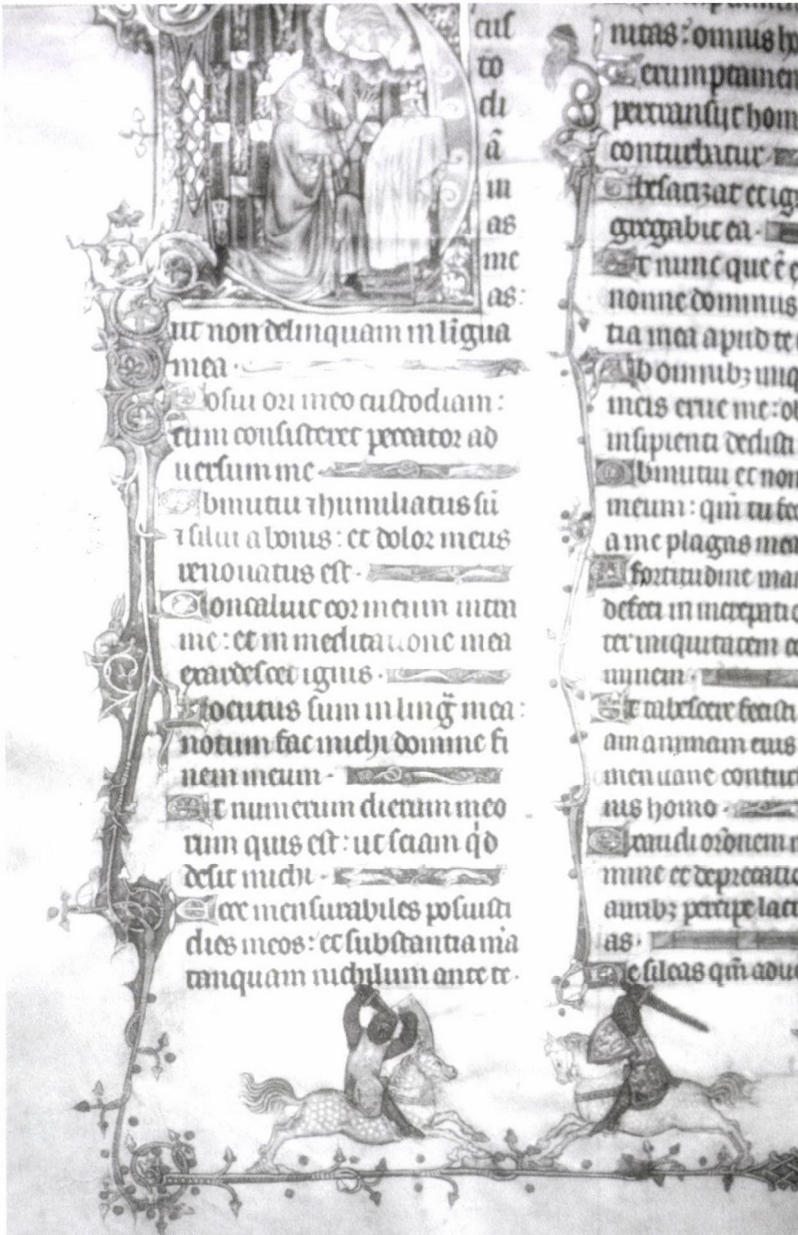 cus
to
di
ā
in
as
me
as:
ut non delinquam in līgua
mea.
Posui ori meo custodiam:
cum consisteret peccator ad
uersum me
Obmutui ⁊ humiliatus sū
⁊ silui a bonis: et dolor meus
renouatus est.
Concaluit cor meum intra
me: et in meditatione mea
exardescet ignis.
Locutus sum in ling̃ mea:
notum fac michi domine fi
nem meum.
Et numerum dierum meo
rum quis est: ut sciam qd̓
desit michi.
Ecce mensurabiles posuisti
dies meos: et substantia mā
tanquam nichilum ante te.
nitas: omnis ho
Uerumptamen
pertransijt hom
conturbatur
Thesarizat et ig
gregabit ea.
Et nunc que ē e
nonne dominus
tia mea apud te
Ab omnibꝫ iniq
meis erue me: ob
insipienti dedisti
Obmutui et non
meum: qm̄ tu fec
a me plagas mea
A fortitudine man
defeci in increpatio
ter iniquitatem co
minem.
Et tabescere fecisti
am animam eius
men uane contur
nis homo.
Exaudi oronem m
mine et deprecatio
auribꝫ percipe lacr
as.
Ne sileas qm̄ adue